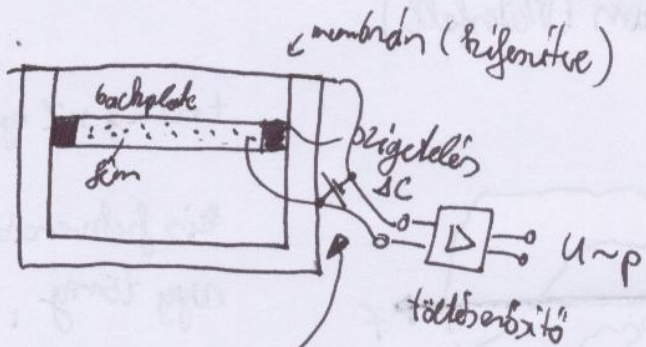 membrán (kifeszítve)
backplate
szigetelés
fém
ΔC
U~p
töltéserősítő